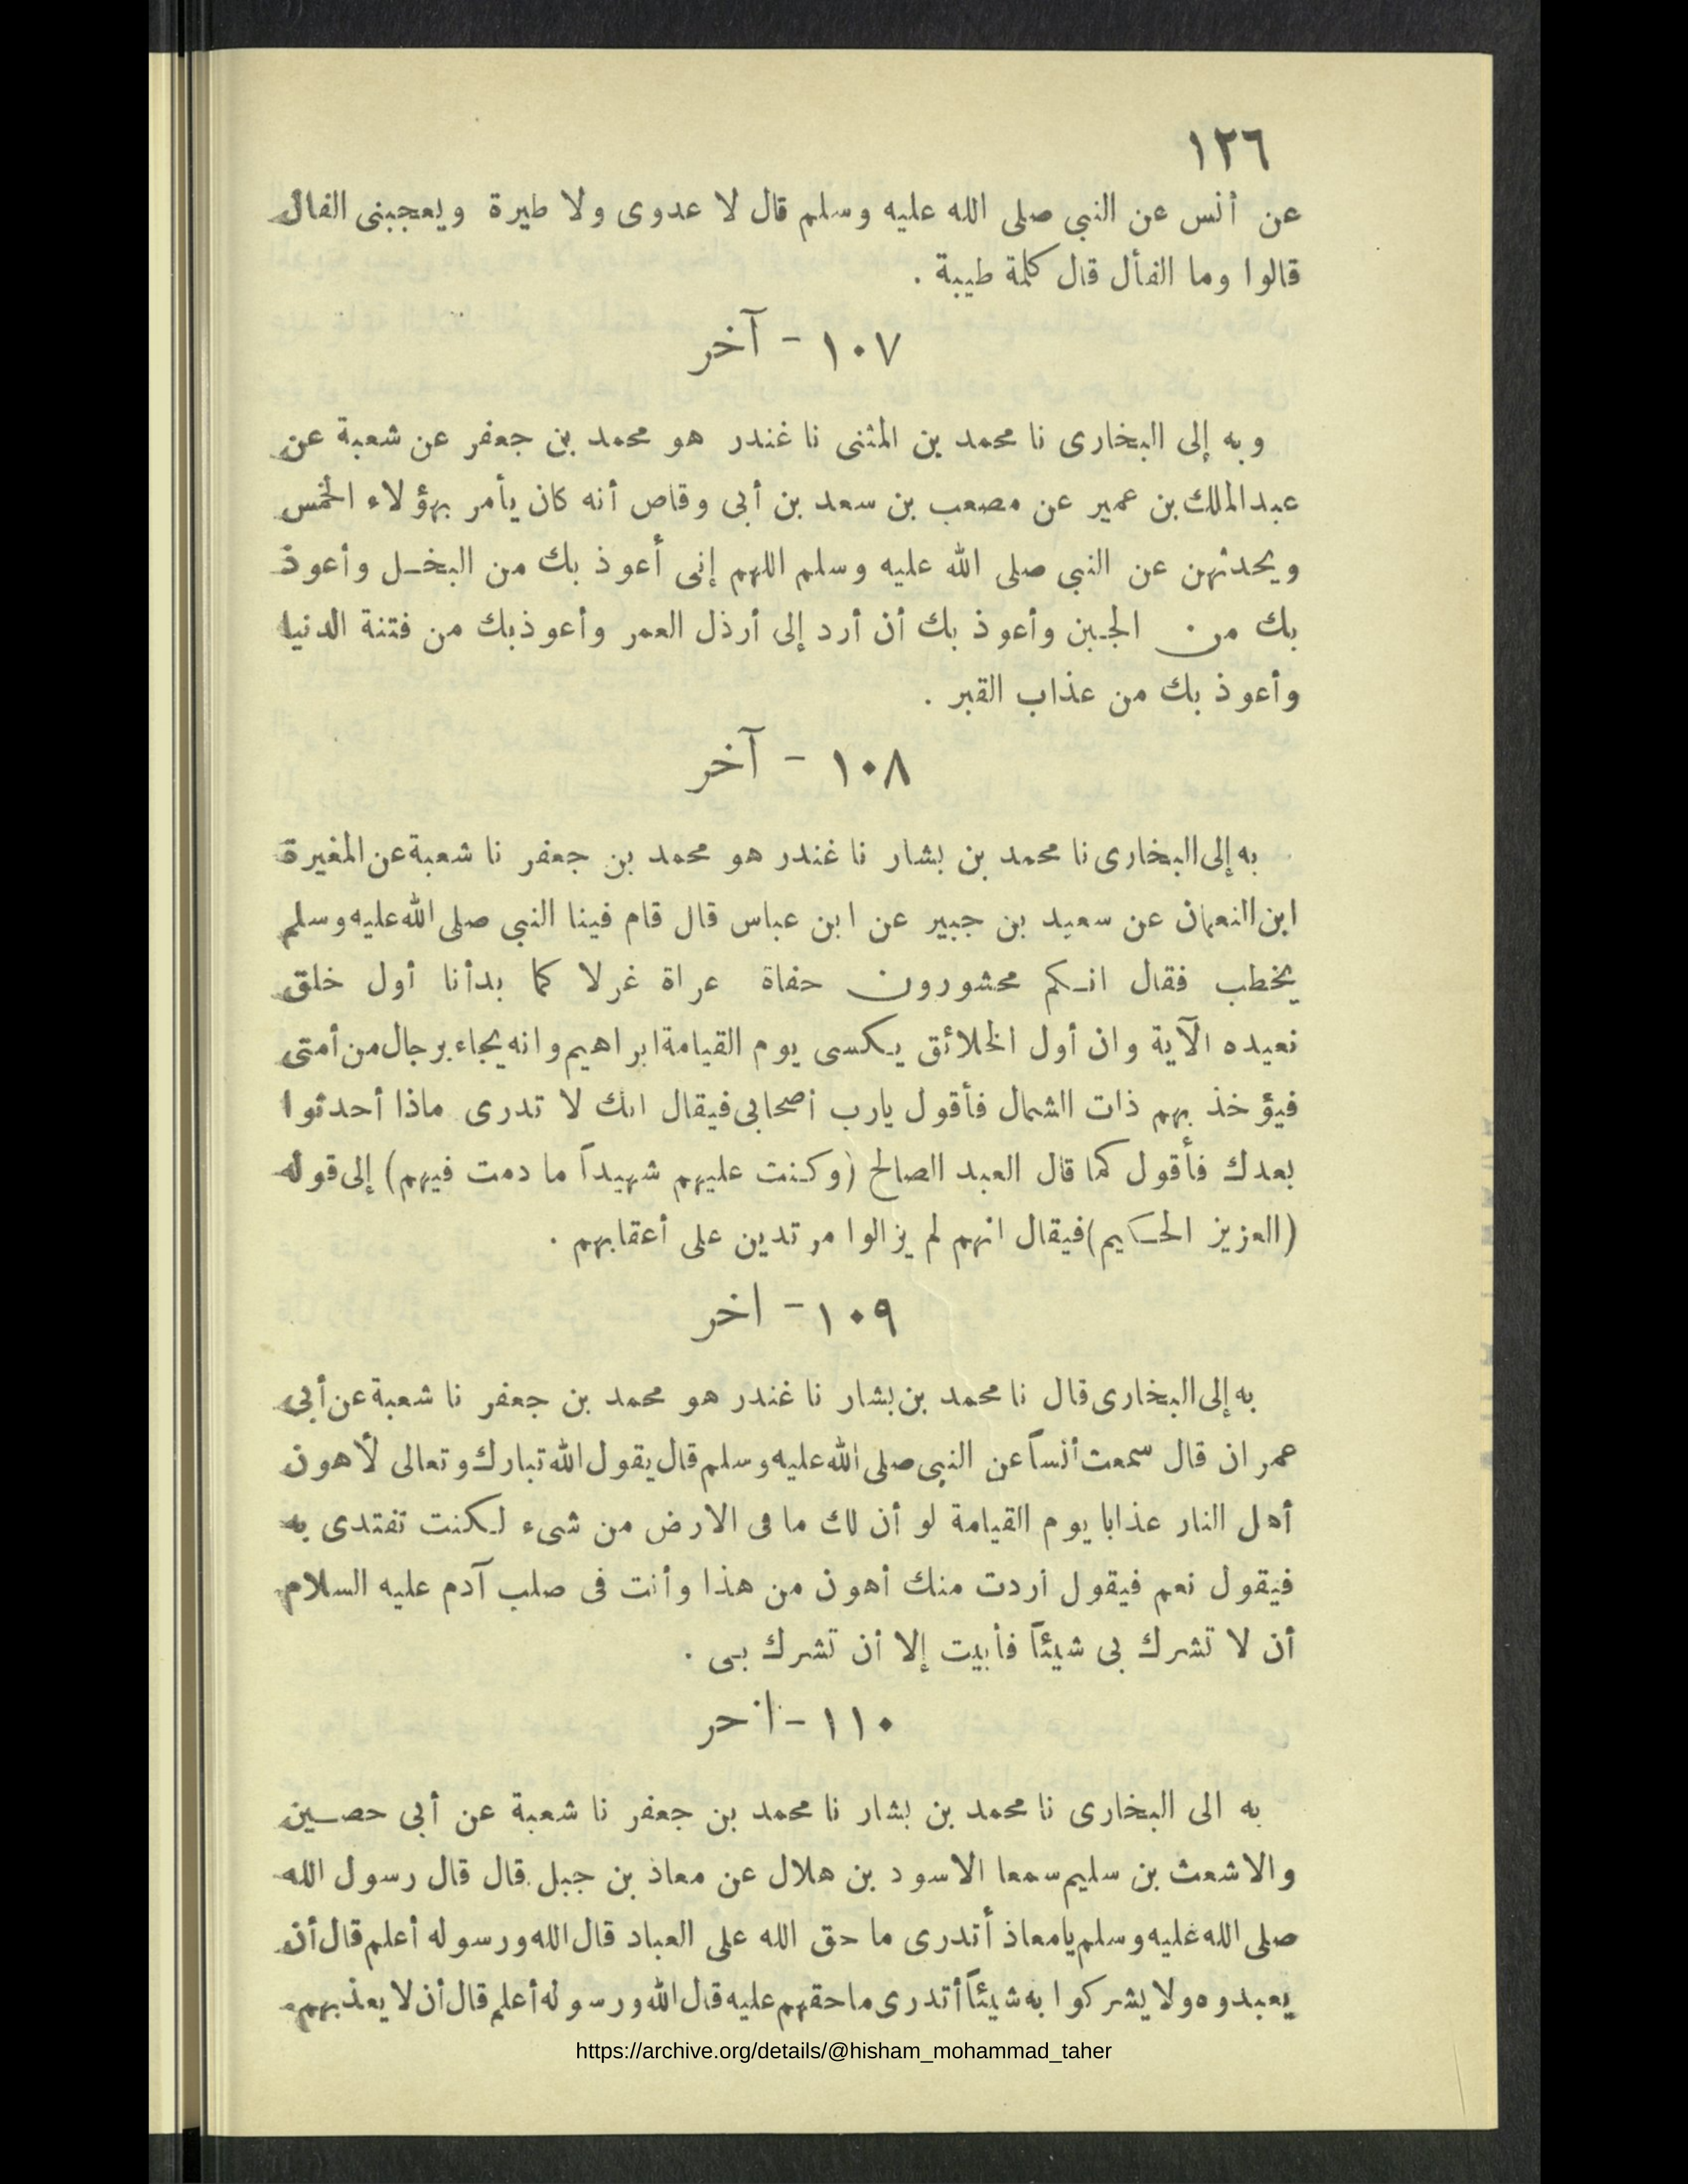 ١٢٦
عن أنس عن النبي صلى الله عليه وسلم قال لا عدوى ولا طيرة ويعجبنى الفال
قالوا وما الفأل قال كلمة طيبة .
١٠٧ - آخر
وبه إلى البخارى نا محمد بن المثنى نا غندر هو محمد بن جعفر عن شعبة عن
عبد الملك بن عمير عن مصعب بن سعد بن أبى وقاص أنه كان يأمر بهؤلاء الخمس
ويحدثهن عن النبي صلى الله عليه وسلم اللهم إنى أعوذ بك من البخل وأعوذ
بك من الجبن وأعوذ بك أن أرد إلى أرذل العمر وأعوذ بك من فتنة الدنيا
وأعوذ بك من عذاب القبر .
١٠٨ - آخر
به إلى البخارى نا محمد بن بشار نا غندر هو محمد بن جعفر نا شعبة عن المغيرة
ابن النعمان عن سعيد بن جبير عن ابن عباس قال قام فينا النبي صلى الله عليه وسلم
يخطب فقال انكم محشورون حفاة عراة غرلا كما بدأنا أول خلق
نعيده الآية وان أول الخلائق يكسى يوم القيامة ابراهيم وانه يجاء برجال من أمتى
فيؤخذ بهم ذات الشمال فأقول يارب أصحابى فيقال انك لا تدرى ماذا أحدثوا
بعدك فأقول كما قال العبد الصالح (وكنت عليهم شهيداً ما دمت فيهم) إلى قوله
(العزيز الحكيم) فيقال انهم لم يزالوا مرتدين على أعقابهم .
١٠٩ - اخر
به إلى البخارى قال نا محمد بن بشار نا غندر هو محمد بن جعفر نا شعبة عن أبى
عمران قال سمعت أنساً عن النبى صلى الله عليه وسلم قال يقول الله تبارك وتعالى لأهون
أهل النار عذابا يوم القيامة لو أن لك ما فى الارض من شىء لكنت تفتدى به
فيقول نعم فيقول أردت منك أهون من هذا وأنت فى صلب آدم عليه السلام
أن لا تشرك بى شيئاً فأبيت إلا أن تشرك بى .
١١٠ - اخر
به الى البخارى نا محمد بن بشار نا محمد بن جعفر نا شعبة عن أبى حصين
والاشعث بن سليم سمعا الاسود بن هلال عن معاذ بن جبل قال قال رسول الله
صلى الله عليه وسلم يامعاذ أتدرى ما حق الله على العباد قال الله ورسوله أعلم قال أن
يعبدوه ولا يشركوا به شيئاً أتدرى ما حقهم عليه قال الله ورسوله أعلم قال أن لا يعذبهم
https://archive.org/details/@hisham_mohammad_taher